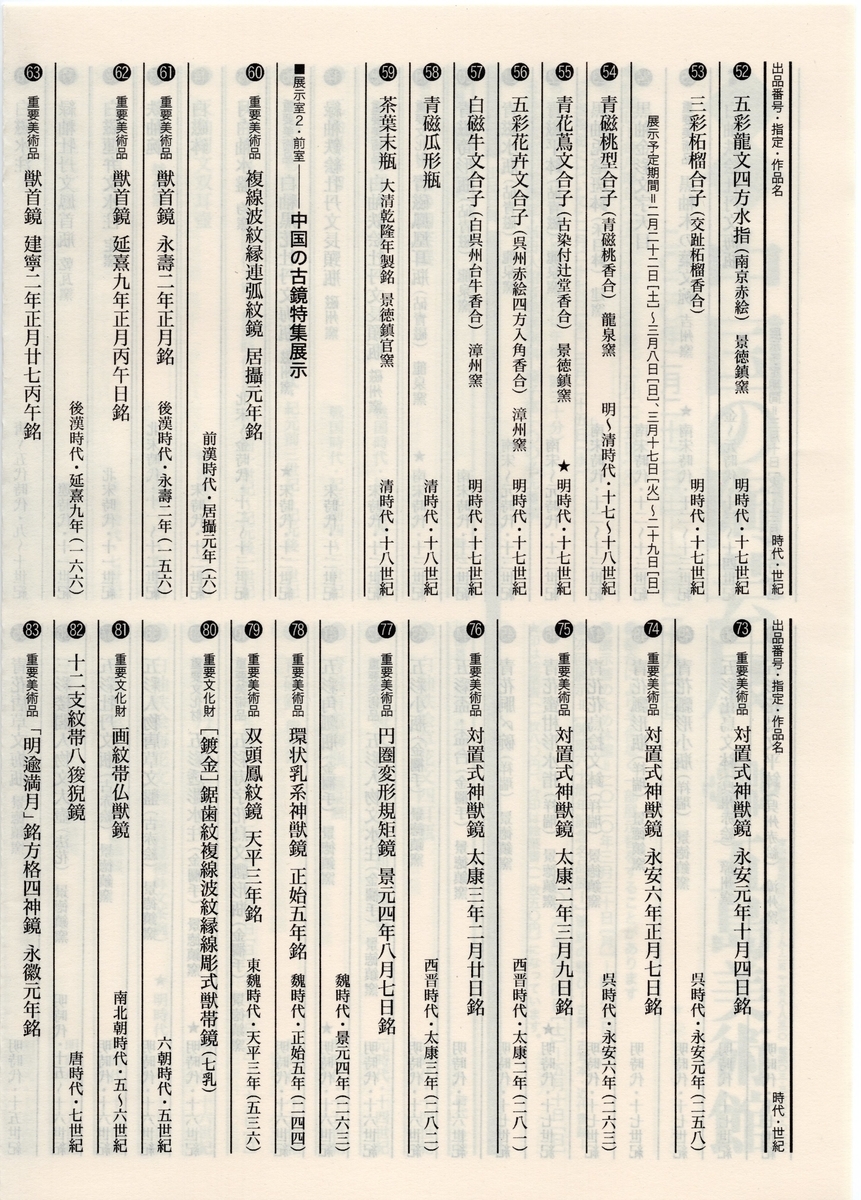 出品番号・指定・作品名 時代・世紀
52 五彩龍文四方水指(南京赤絵) 景徳鎮窯 明時代・十七世紀
53 三彩柘榴合子(交趾柘榴香合) 明時代・十七世紀
展示予定期間=二月二十二日[土]〜三月八日[日]、三月十七日[火]〜二十九日[日]
54 青磁桃型合子(青磁桃香合) 龍泉窯 明〜清時代・十七〜十八世紀
55 青花蔦文合子(古染付辻堂香合) 景徳鎮窯 ★ 明時代・十七世紀
56 五彩花卉文合子(呉州赤絵四方入角香合) 漳州窯 明時代・十七世紀
57 白磁牛文合子(白呉州台牛香合) 漳州窯 明時代・十七世紀
58 青磁瓜形瓶 清時代・十八世紀
59 茶葉末瓶 大清乾隆年製銘 景徳鎮官窯 清時代・十八世紀
■展示室2・前室――中国の古鏡特集展示
60 重要美術品 複線波紋縁連弧紋鏡 居攝元年銘
前漢時代・居攝元年(六)
61 重要美術品 獣首鏡 永壽二年正月銘 後漢時代・永壽二年(一五六)
62 重要美術品 獣首鏡 延熹九年正月丙午日銘
後漢時代・延熹九年(一六六)
63 重要美術品 獣首鏡 建寧二年正月廿七丙午銘
出品番号・指定・作品名 時代・世紀
73 重要美術品 対置式神獣鏡 永安元年十月四日銘
呉時代・永安元年(二五八)
74 重要美術品 対置式神獣鏡 永安六年正月七日銘
呉時代・永安六年(二六三)
75 重要美術品 対置式神獣鏡 太康二年三月九日銘
西晋時代・太康二年(二八一)
76 重要美術品 対置式神獣鏡 太康三年二月廿日銘
西晋時代・太康三年(二八二)
77 重要美術品 円圏変形規矩鏡 景元四年八月七日銘
魏時代・景元四年(二六三)
78 重要美術品 環状乳系神獣鏡 正始五年銘 魏時代・正始五年(二四四)
79 重要美術品 双頭鳳紋鏡 天平三年銘 東魏時代・天平三年(五三六)
80 重要文化財 [鍍金]鋸歯紋複線波紋縁線彫式獣帯鏡(七乳)
六朝時代・五世紀
81 重要文化財 画紋帯仏獣鏡 南北朝時代・五〜六世紀
82 十二支紋帯八狻猊鏡 唐時代・七世紀
83 重要美術品 「明逾満月」銘方格四神鏡 永徽元年銘